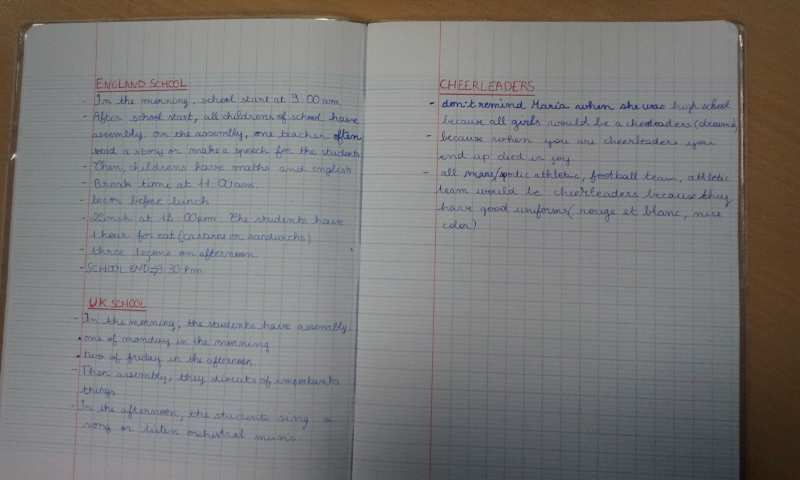 ENGLAND SCHOOL
- In the morning, school start at 9:00 am
- After school start, all childrens of school have
assembly. On the assembly, one teacher often
read a story or makes speech for the students
- Then childrens have maths and english
- Break time at 11:00am
- lesson before lunch
- Lunch at 12:00am. The students have
1 hour for eat (canteen or sandwichs)
- three leçons on afternoon
- SCHOOL END → 3:30 Pm
UK SCHOOL
- In the morning, the students have assembly.
• one of monday in the morning
• two of friday in the afternoon
- Then assembly, they discuts of importants
things
- In the afternoon, the students sing a
song or listen orchestral music
CHEERLEADERS
- don't remind Maria when she was high school
because all girls would be a cheerleaders (dreams)
- because when you are cheerleaders you
end up died in you
- all athletic, football team, athletic
team would be cheerleaders because they
have good uniforms (rouge et blanc, nice
color)